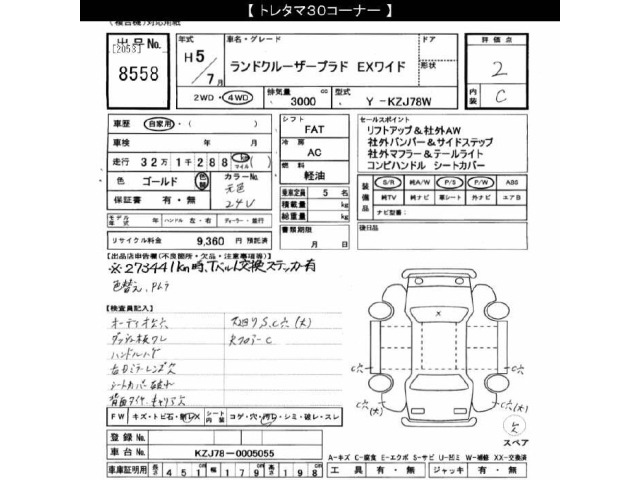 【 トレタマ３０コーナー 】
(複合機)対応用紙
出品No.
[2053]
8558
年式
H5/7月
車名・グレード
ランドクルーザープラド EXワイド
ドア
形状
評価点
2
内装
C
2WD・4WD
排気量
3000
cc
型式
Y -KZJ78W
車歴
自家用・( )
車検
年 月
走行
32万1千288
km
マイル
( )
色
ゴールド
色替
カラーNo.
元色
24V
保証書
有・無
モデル年式
年
ハンドル
左・右
ディーラー・並行
リサイクル料金
9,360 円 預託済
シフト
FAT
冷房
AC
燃料
軽油
乗車定員
5 名
積載量
kg
総重量
kg
書類期限
月 日
セールスポイント
リフトアップ＆社外AW
社外バンパー＆サイドステップ
社外マフラー＆テールライト
コンビハンドル シートカバー
装備品
S/R 純A/W P/S P/W ABS
純TV 純ナビ 革シート 外ナビ エアB
ナビ型番:
後日品
【出品店申告欄(不良箇所・欠品・注意事項等)】
※273441km時、Tベルト交換ステッカー有
色替え、
【検査員記入】
オーディオ欠穴
下廻りS,C穴(大)
ハンドルハゲ
右ドミラーレンズ欠
シートカバー破れ
背面タイヤ、キャリア欠
FW
キズ・トビ石・無
X
シート内装
コゲ・穴・汚レ・シミ・破レ・スレ
登録No.
車台No.
KZJ78-0005055
車庫証明用
長さ 451 幅 179 高さ 198
C穴
C穴
C穴(大)
C穴(大)
X
欠
スペア
A-キズ C-腐食 E-エクボ S-サビ U-凹ミ W-補修 XX-交換済
工具 有・無
ジャッキ 有・無